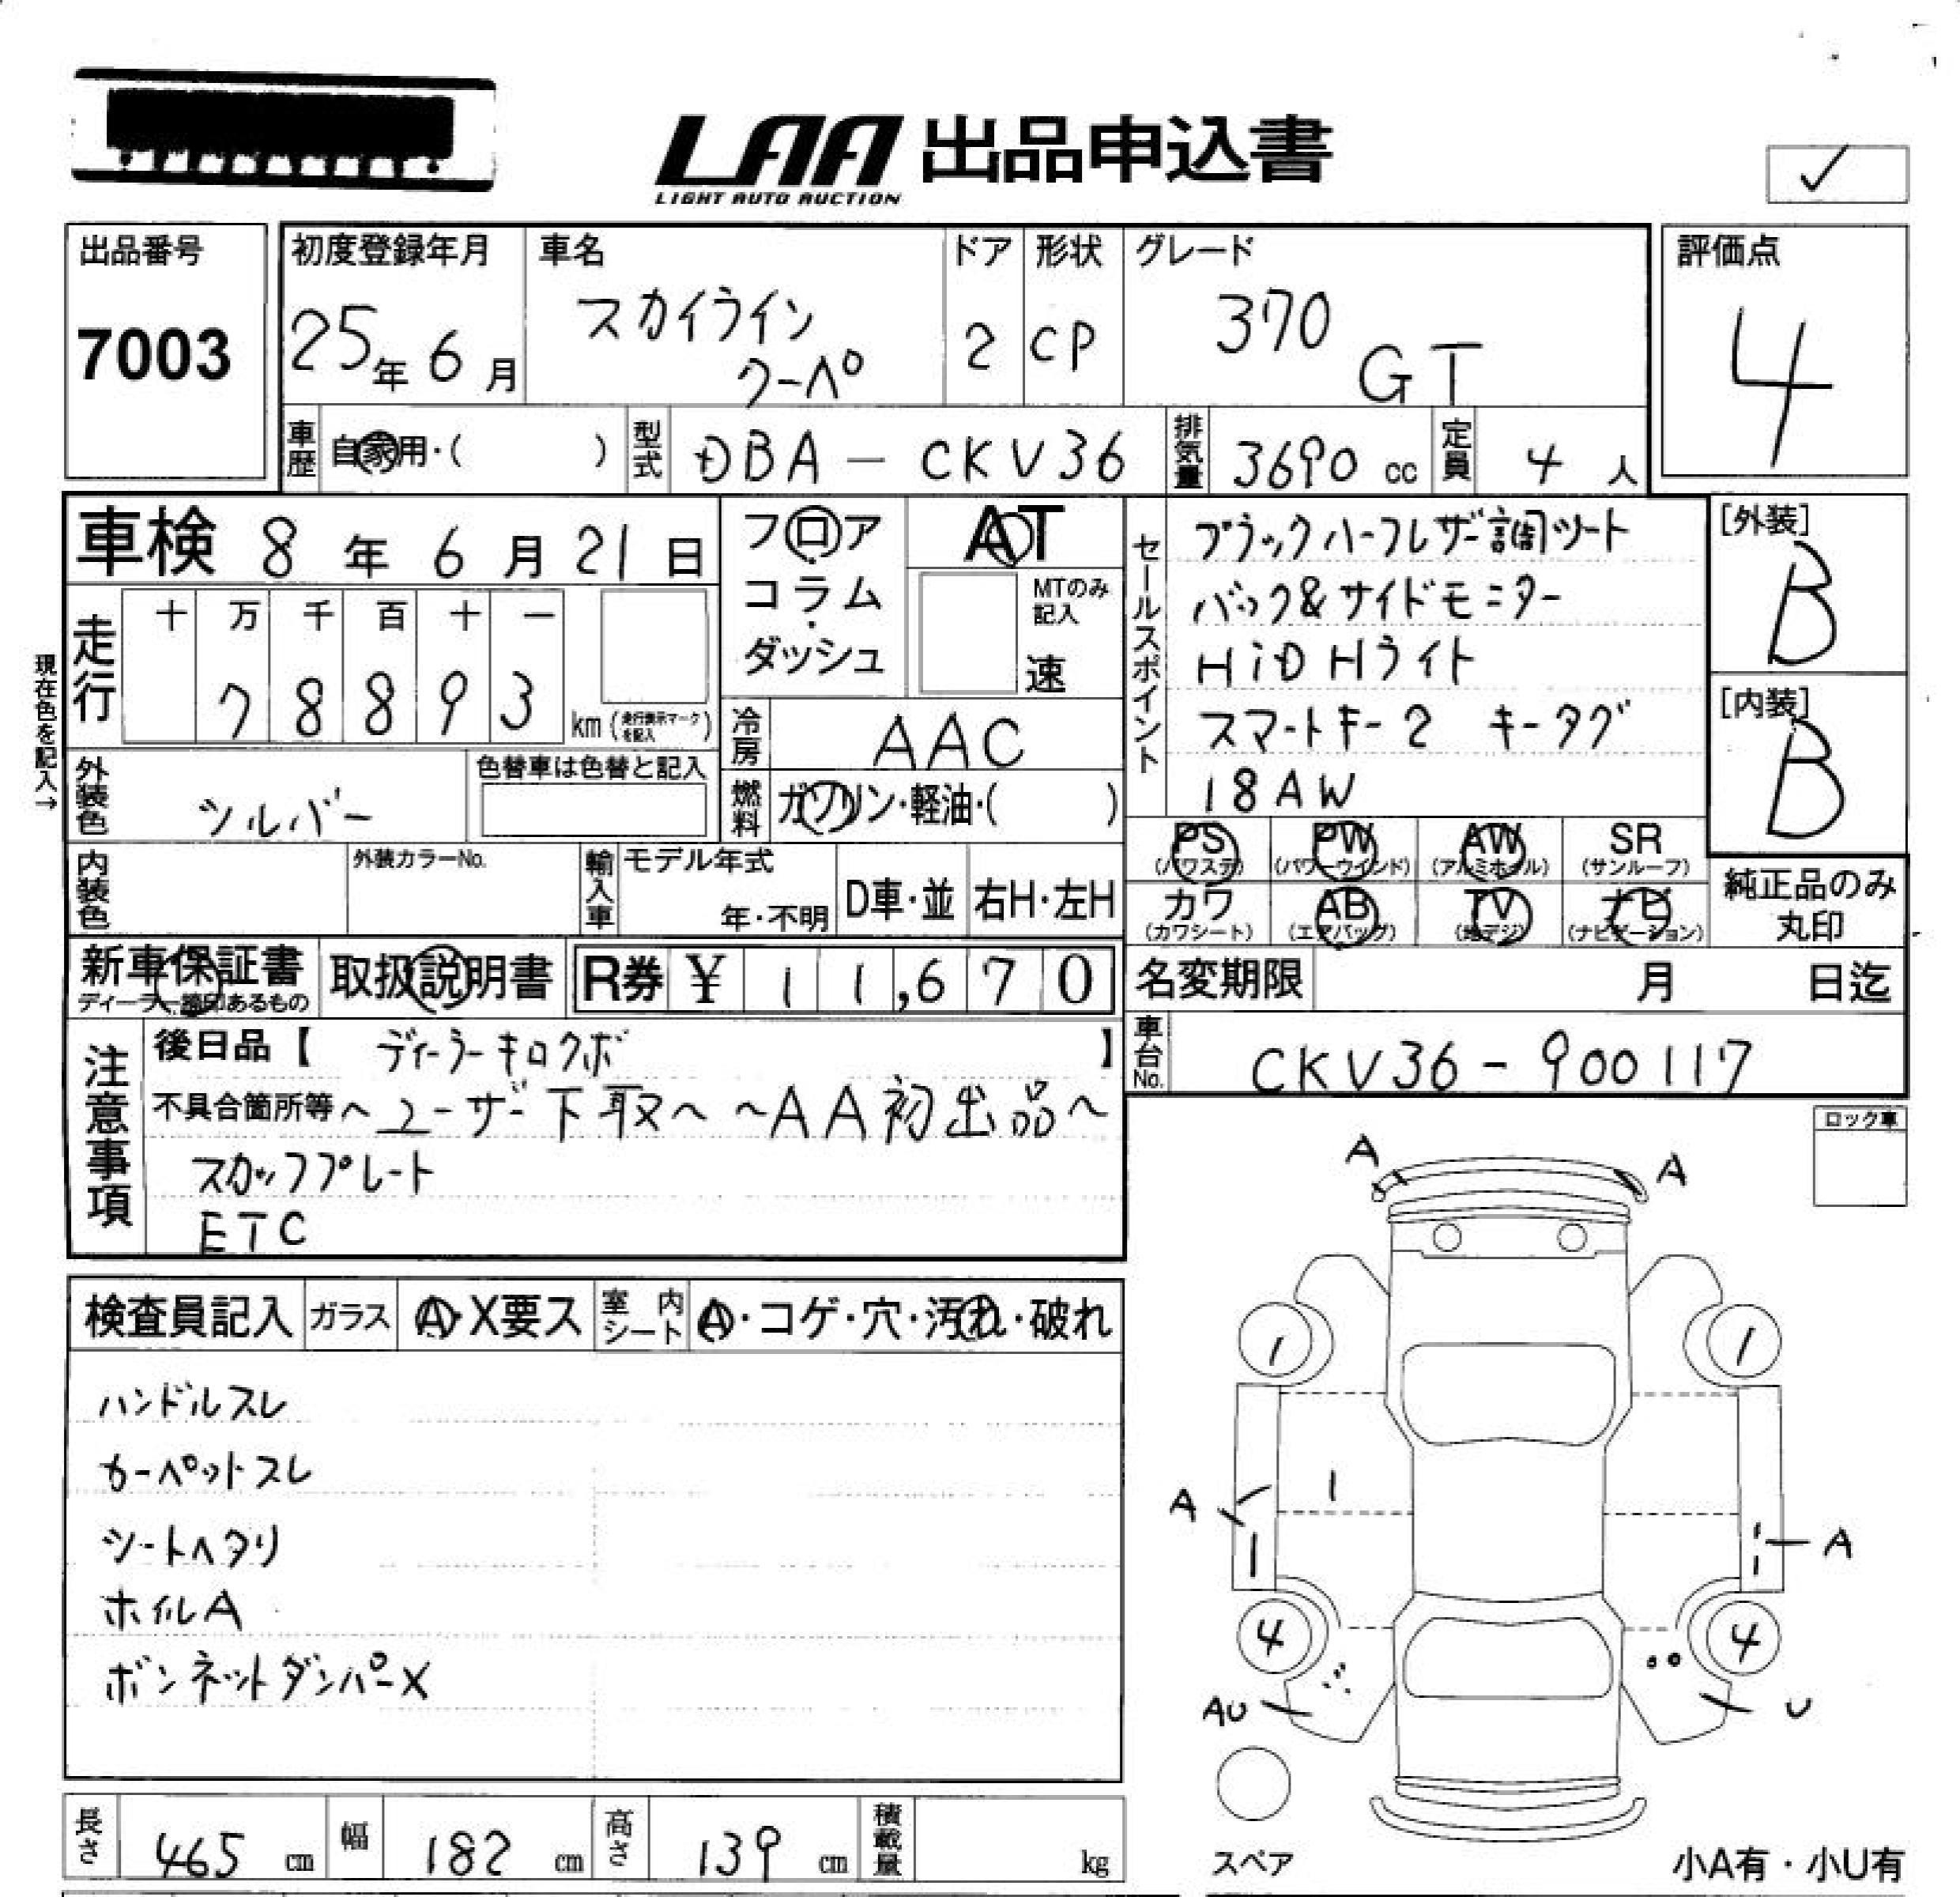 LAA 出品申込書
LIGHT AUTO AUCTION
✓
出品番号
7003
初度登録年月
25年 6月
車名
スカイライン
クーペ
ドア
2
形状
CP
グレード
370
GT
評価点
4
車歴
自家用・( )
型式
DBA-CKV36
排気量
3690 cc
定員
4 人
車検 8 年 6 月 21 日
現在色を記入→
走行
十 万 千 百 十 一
7 8 8 9 3
km (走行表示マークを記入)
外装色
シルバー
色替車は色替と記入
内装色
外装カラーNo.
フロア
コラム
ダッシュ
AT
MTのみ
記入
速
冷房
AAC
燃料
ガソリン・軽油・( )
輸入車
モデル年式
年・不明
D車・並
右H・左H
セールスポイント
ブラックハーフレザー調シート
バック&サイドモニター
HiD Hライト
スマートキー2 キータグ
18AW
[外装]
B
[内装]
B
PS
(パワステ)
PW
(パワーウインド)
AW
(アルミホイル)
SR
(サンルーフ)
カワ
(カワシート)
AB
(エアバッグ)
TV
(地デジ)
ナビ
(ナビゲーション)
純正品のみ
丸印
新車保証書
ディーラー捺印あるもの
取扱説明書
R券 ¥ 11,670
名変期限
月 日迄
車台No.
CKV36-900117
注意事項
後日品【 ディーラーキロクボ 】
不具合箇所等 〜ユーザー下取〜 〜AA初出品〜
スカッフプレート
ETC
ロック車
検査員記入
ガラス
A・X要ス
室内シート
A・コゲ・穴・汚れ・破れ
ハンドルスレ
カーペットスレ
シートヘタリ
ホイルA
ボンネットダンパーX
A
A
1
1
A
A
4
4
AU
U
スペア
小A有・小U有
長さ
465 cm
幅
182 cm
高さ
139 cm
積載量
kg